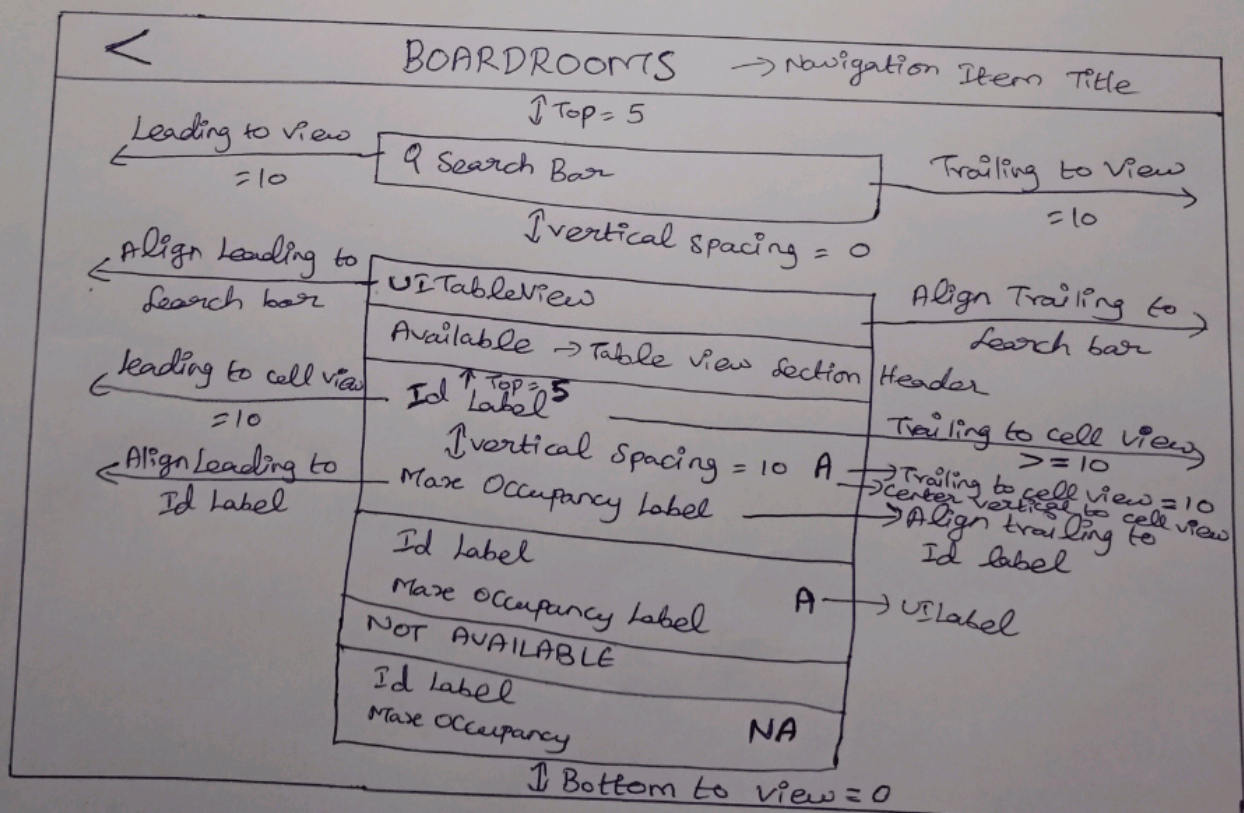 < BOARDROOMS → Navigation Item Title
↕ Top = 5
Leading to view
= 10
Search Bar
Trailing to View
= 10
↕ vertical spacing = 0
Align Leading to
Search bar
UITableView
Align Trailing to
Search bar
Available → Table view Section Header
leading to cell view
= 10
↑ Top = 5
Id Label
Trailing to cell view
>= 10
↕ vertical Spacing = 10
A → Trailing to cell view = 10
→ center vertical to cell view
Align Leading to
Id Label
Max Occupancy Label
→ Align trailing to
Id label
Id Label
Max Occupancy Label
A → UILabel
NOT AVAILABLE
Id Label
Max Occupancy
NA
↕ Bottom to view = 0